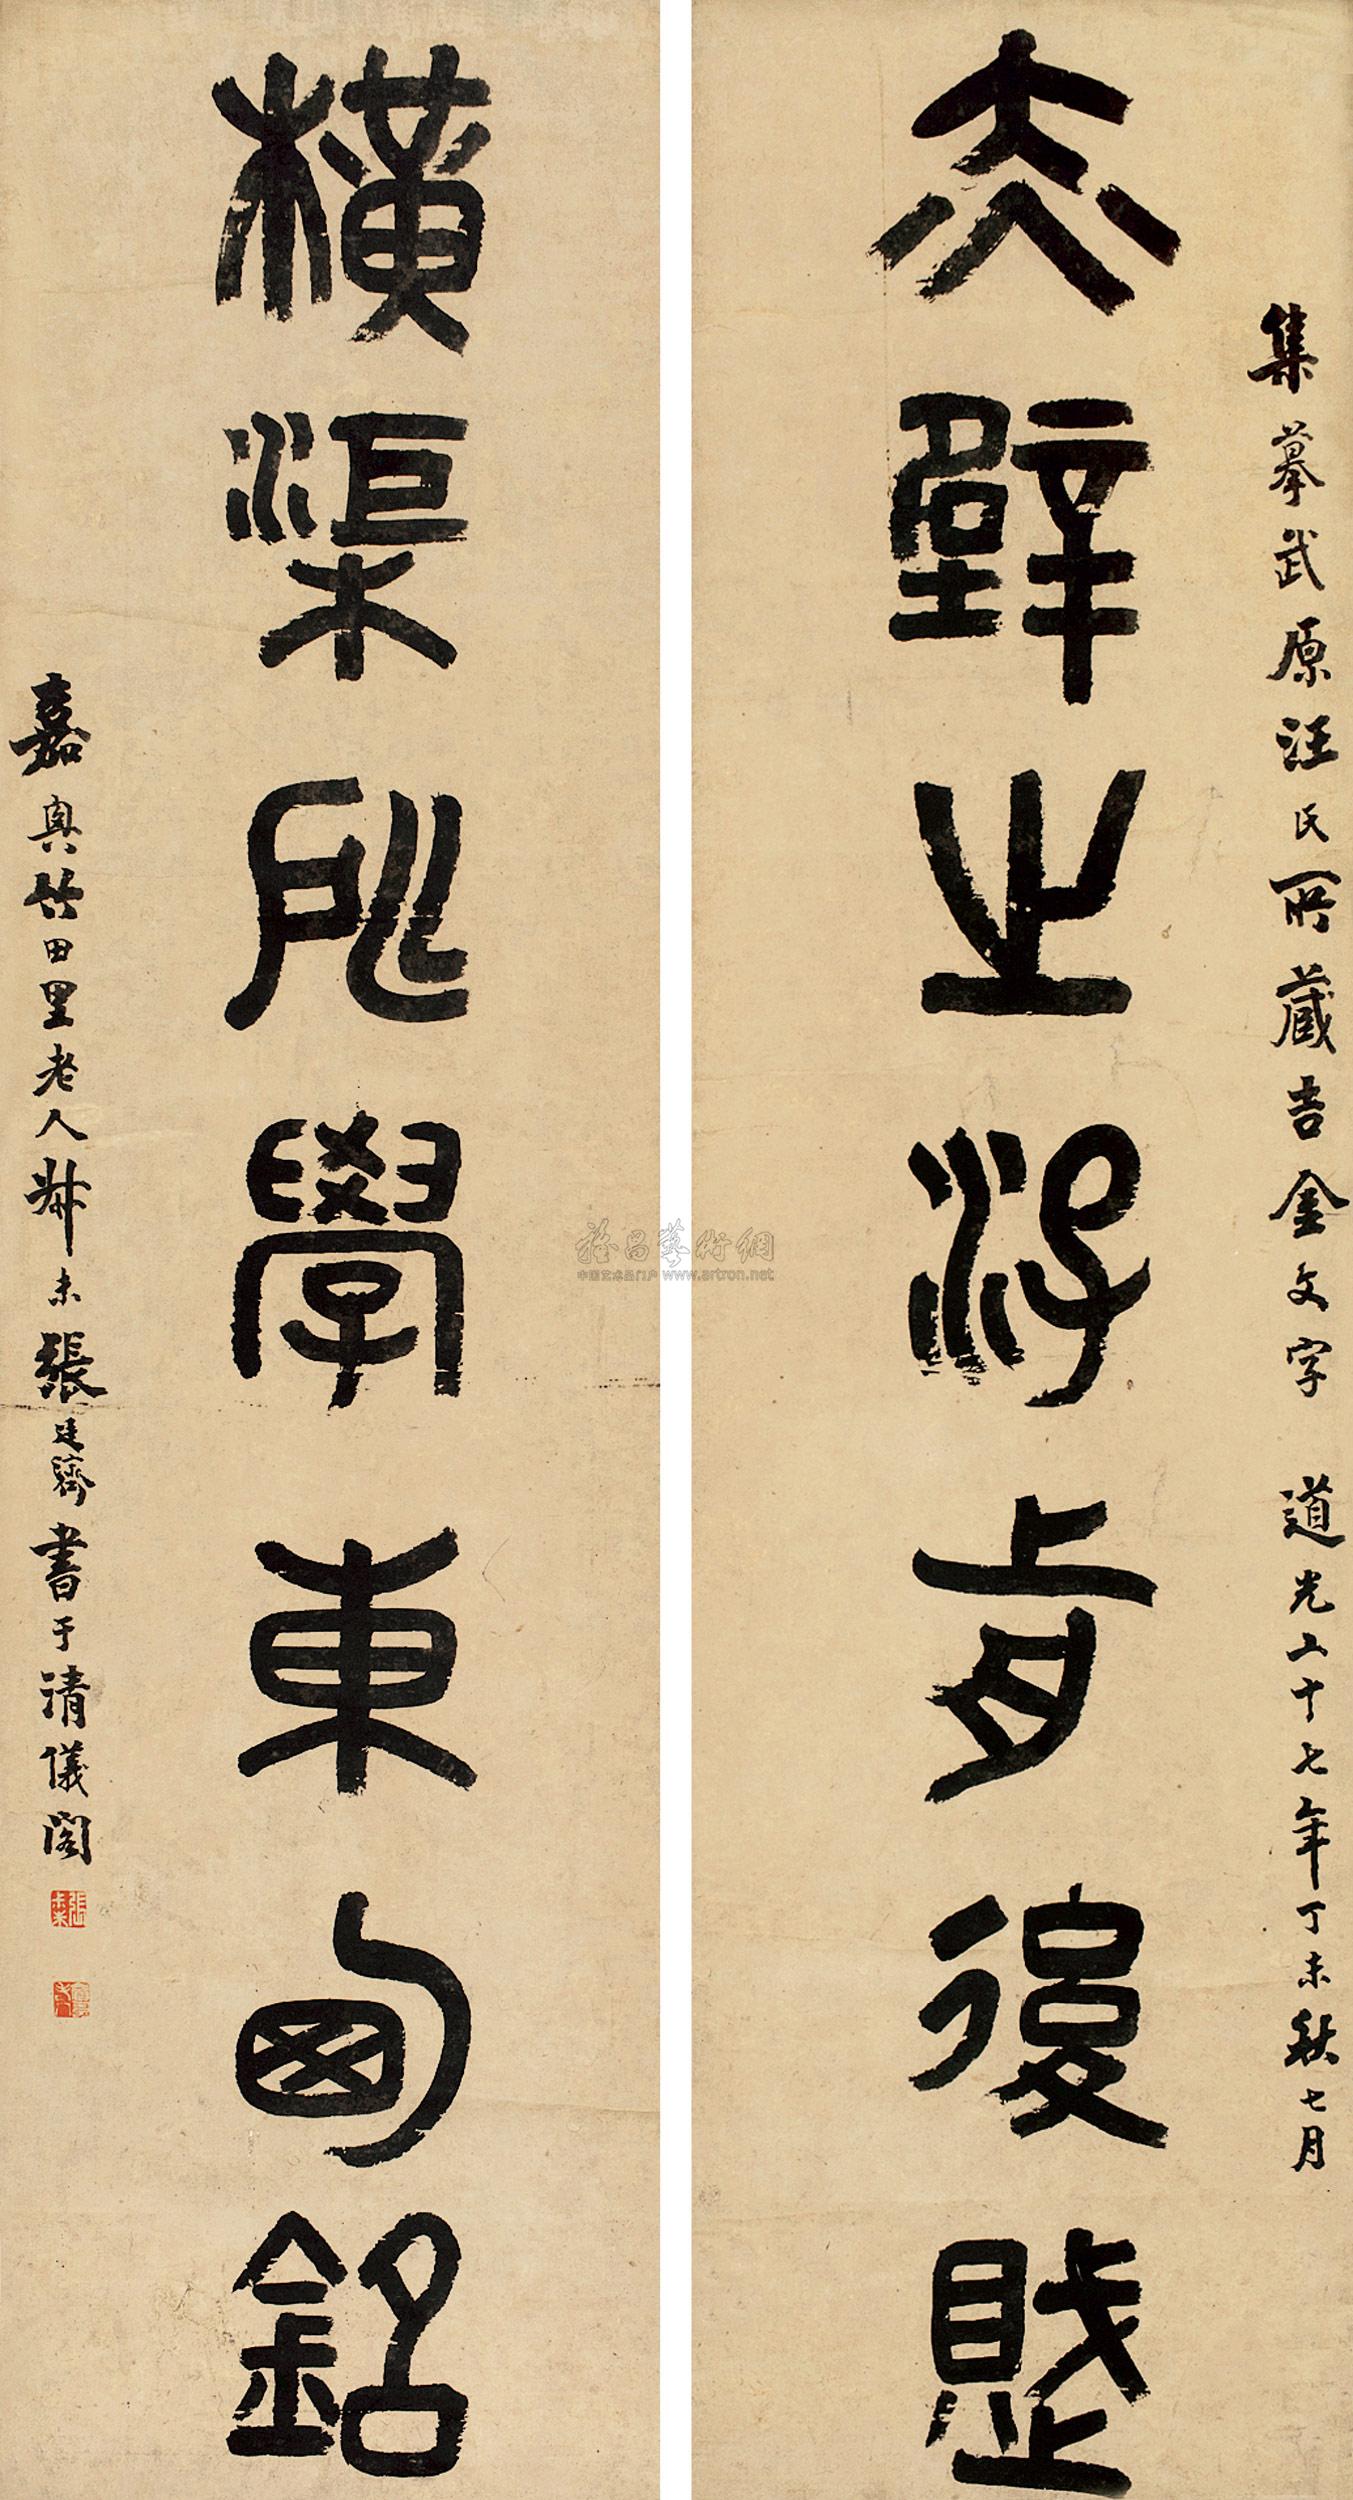 集摹武原汪氏所藏吉金文字 道光二十七年丁未秋七月
赤壁之游歬後賦
橫渠所學東西銘
嘉興竹田里老人叔未張廷濟書于清儀閣
雅昌藝術網
中国艺术品门户 www.artron.net